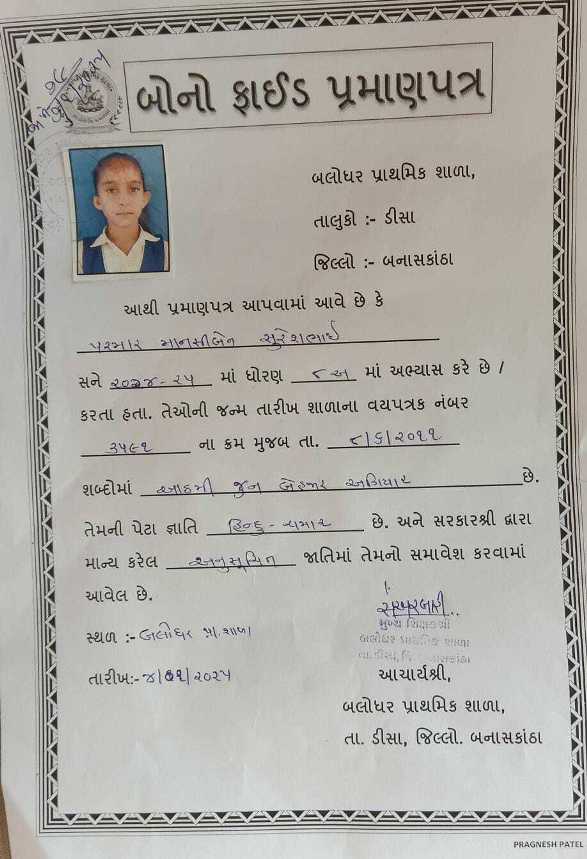 બોનો ફાઈડ પ્રમાણપત્ર
બલોધર પ્રાથમિક શાળા,
તાલુકો :- ડીસા
જિલ્લો :- બનાસકાંઠા
આથી પ્રમાણપત્ર આપવામાં આવે છે કે
પરમાર માનસીબેન સુરેશભાઈ
સને ૨૦૨૪-૨૫ માં ધોરણ ૮અ માં અભ્યાસ કરે છે /
કરતા હતા. તેઓની જન્મ તારીખ શાળાના વયપત્રક નંબર
૩૫૯૧ ના ક્રમ મુજબ તા. ૮/૬/૨૦૧૧
શબ્દોમાં આઠમી જુન બેહજાર અગિયાર છે.
તેમની પેટા જ્ઞાતિ હિન્દુ-ચમાર છે. અને સરકારશ્રી દ્વારા
માન્ય કરેલ અનુસૂચિત જાતિમાં તેમનો સમાવેશ કરવામાં
આવેલ છે.
સ્થળ :- બલોધર પ્રા. શાળા
મુખ્ય શિક્ષકશ્રી
બલોધર પ્રાથમિક શાળા
તારીખ:- ૪/૦૧/૨૦૨૫
આચાર્યશ્રી,
બલોધર પ્રાથમિક શાળા,
તા. ડીસા, જિલ્લો. બનાસકાંઠા
PRAGNESH PATEL